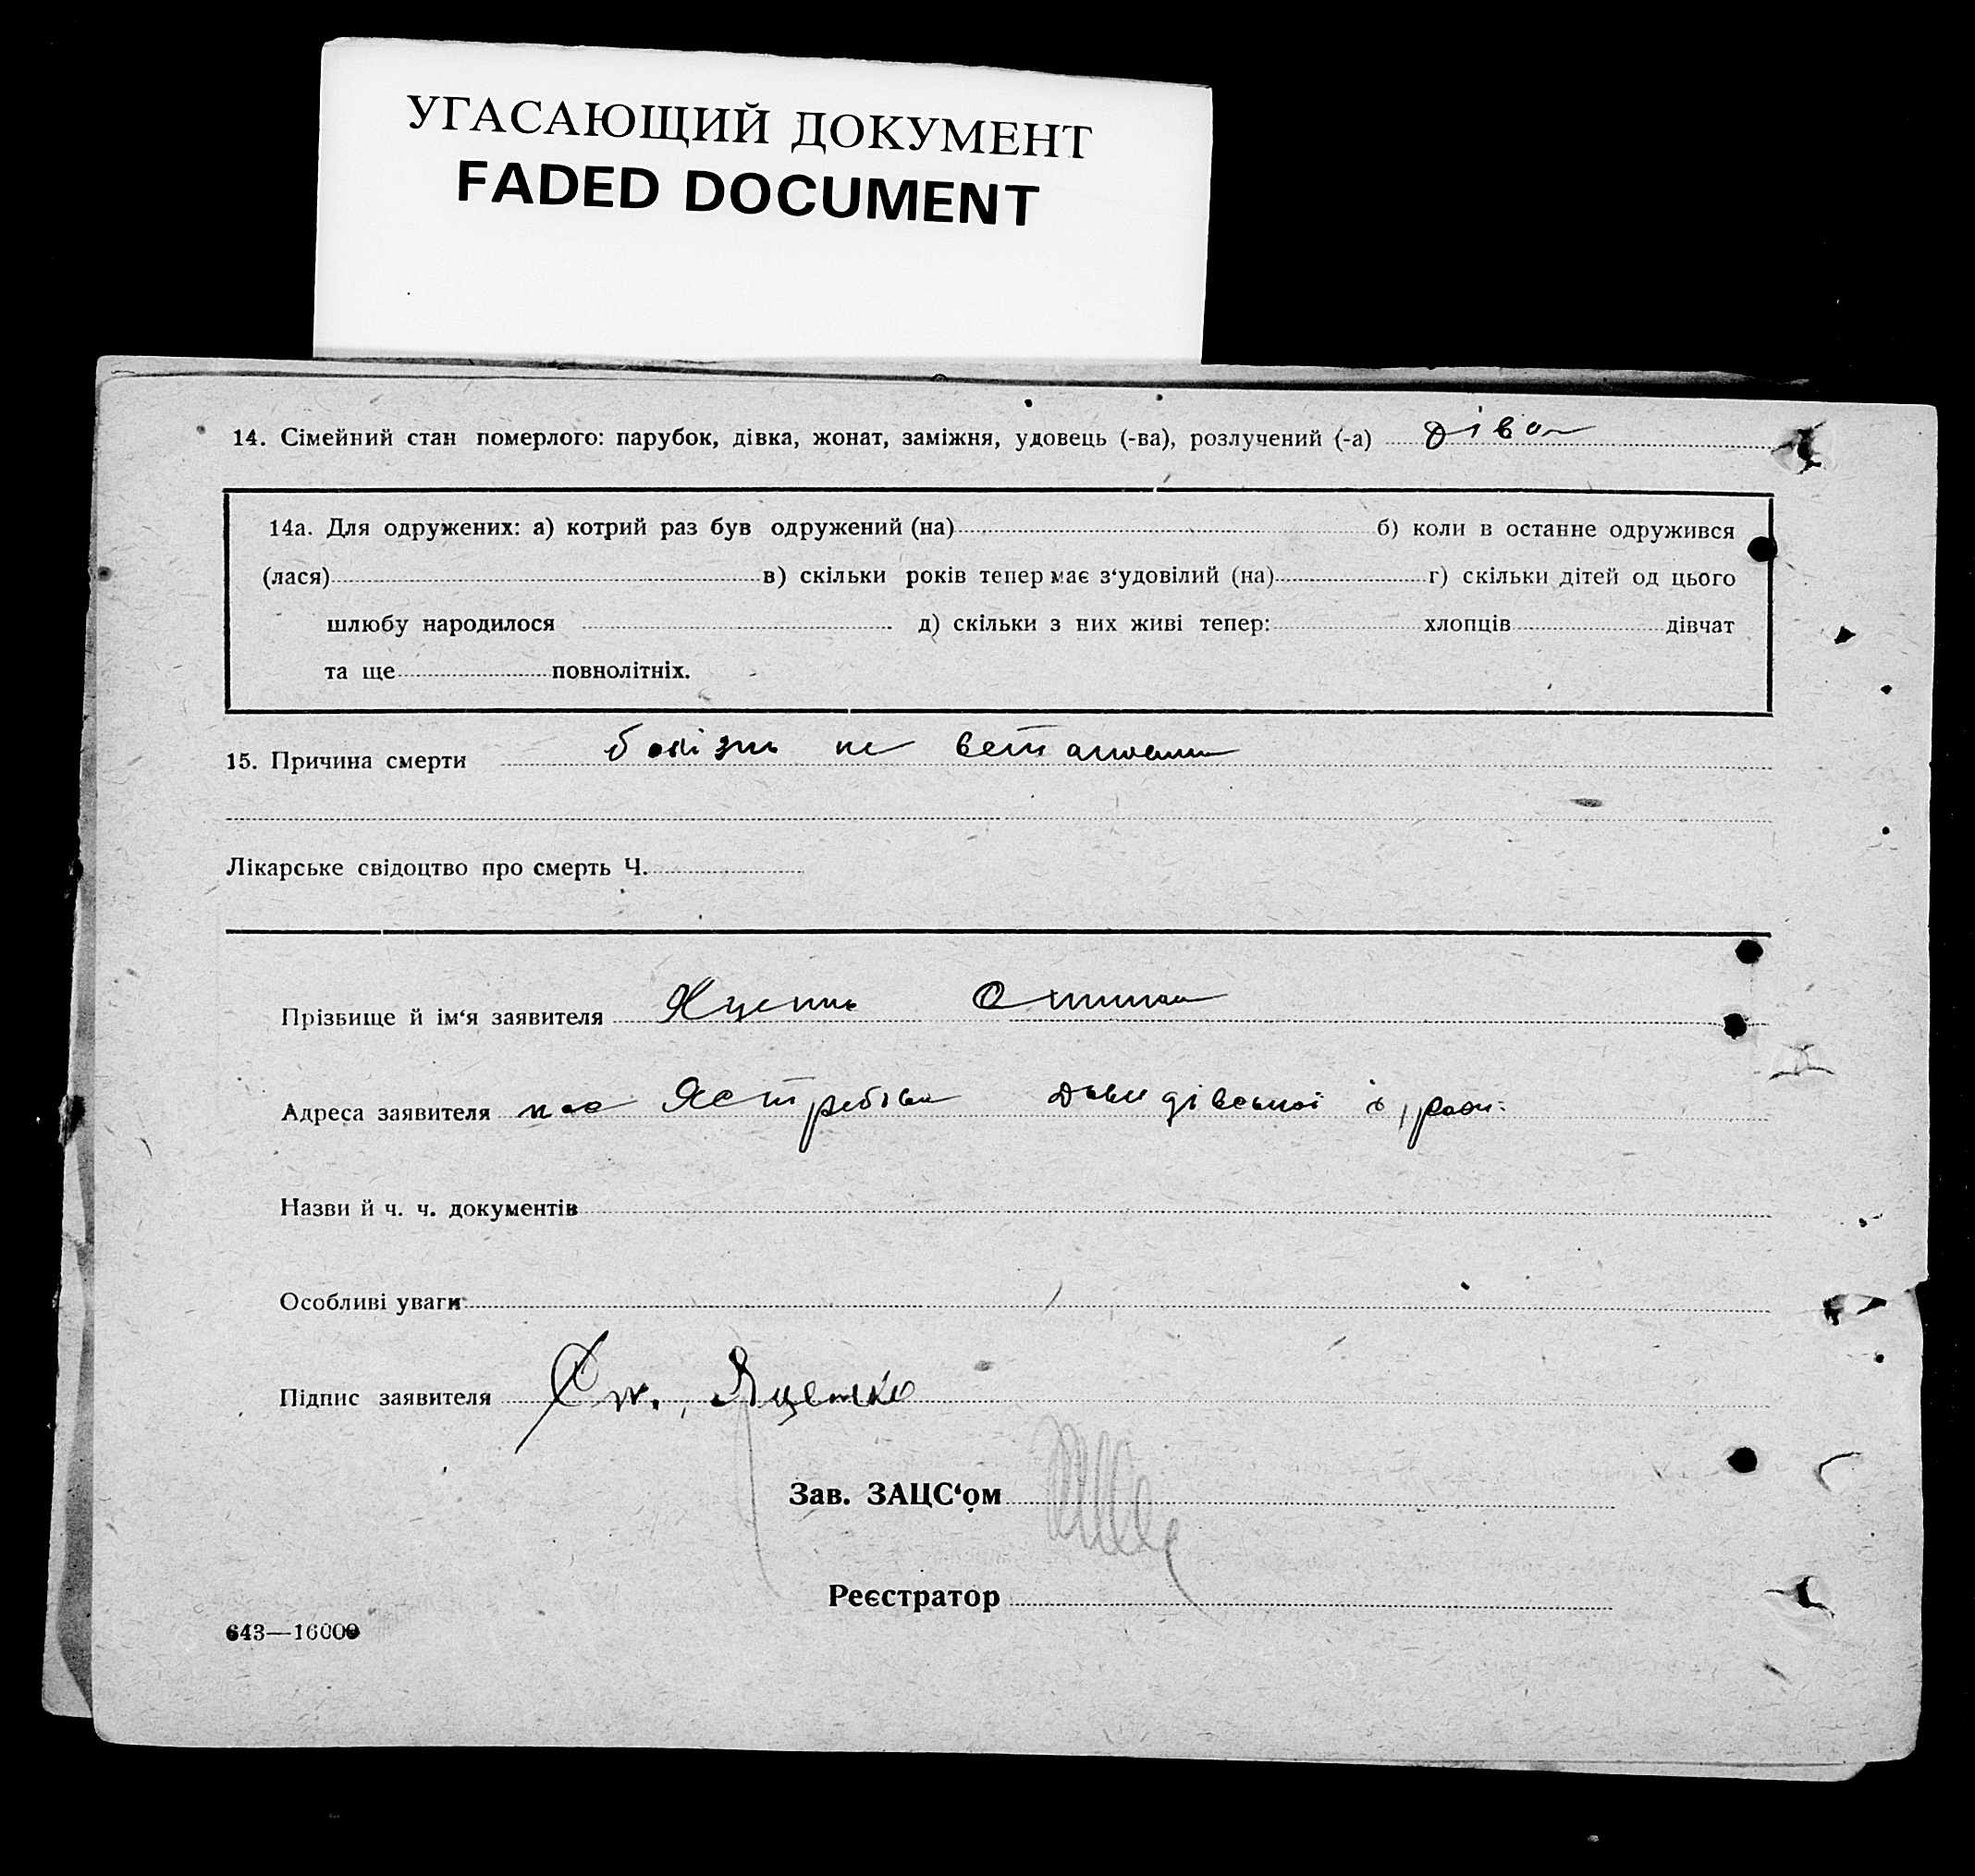 УГАСАЮЩИЙ ДОКУМЕНТ
FADED DOCUMENT
14. Сімейний стан померлого: парубок, дівка, жонат, заміжня, удовець (-ва), розлучений (-а) дівка
14а. Для одружених: а) котрий раз був одружений (на) б) коли в останне одружився
(лася) в) скільки років тепер має з‘удовілий (на) г) скільки дітей од цього
шлюбу народилося д) скільки з них живі тепер: хлопців дівчат
та ще повнолітніх.
15. Причина смерти болізнь не
Лікарське свідоцтво про смерть Ч.
Прізвище й ім‘я заявителя
Адреса заявителя
Назви й ч. ч. документів
Особливі уваги
Підпис заявителя Яценко
Зав. ЗАЦС‘ом
Реєстратор
643—16000